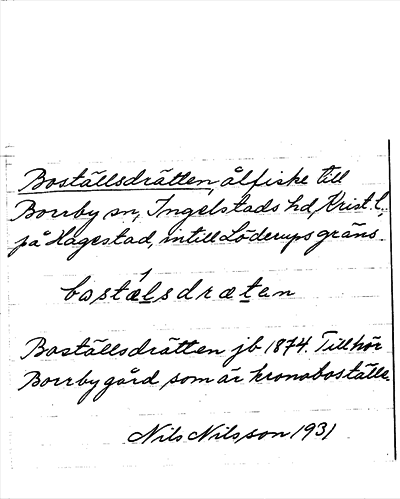 Boställsdrätten, ålfiske till
Borrby sn, Ingelstads hd, Krist. l.,
på Hagestad, intill Löderups gräns.
bostælsdrætan
Boställsdrätten jb 1874. Tillhör
Borrby gård, som är kronoboställe.
Nils Nilsson 1931